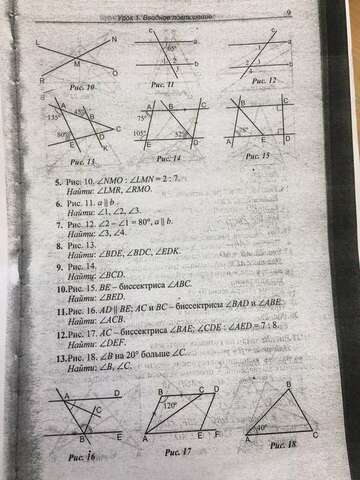 Урок 1. Вводное повторение
9
L
N
M
R
O
Рис. 10
c
a
65°
1
2
3
b
Рис. 11
c
a
1
3
2
4
b
Рис. 12
a
A
B
135°
45°
C
80°
D
E
K
Рис. 13
A
B
C
75°
105°
32°
E
D
Рис. 14
A
B
C
78°
E
D
Рис. 15
5. Рис. 10, ∠NMO : ∠LMN = 2 : 7.
Найти: ∠LMR, ∠RMO.
6. Рис. 11. a || b.
Найти: ∠1, ∠2, ∠3.
7. Рис. 12. ∠2 – ∠1 = 80°, a || b.
Найти: ∠3, ∠4.
8. Рис. 13.
Найти: ∠BDE, ∠BDC, ∠EDK.
9. Рис. 14.
Найти: ∠BCD.
10. Рис. 15. BE – биссектриса ∠ABC.
Найти: ∠BED.
11. Рис. 16. AD || BE; AC и BC – биссектрисы ∠BAD и ∠ABE.
Найти: ∠ACB.
12. Рис. 17. AC – биссектриса ∠BAE; ∠CDE : ∠AED = 7 : 8.
Найти: ∠DEF.
13. Рис. 18. ∠B на 20° больше ∠C.
Найти: ∠B, ∠C.
A
D
C
B
E
Рис. 16
B
C
D
120°
A
E
F
Рис. 17
B
40°
A
C
Рис. 18